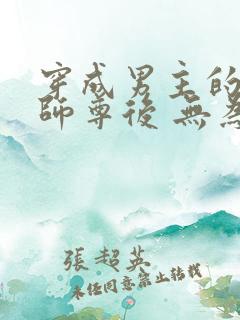 穿成男主的
師尊後 無為
張超英
未經同意禁止轉載